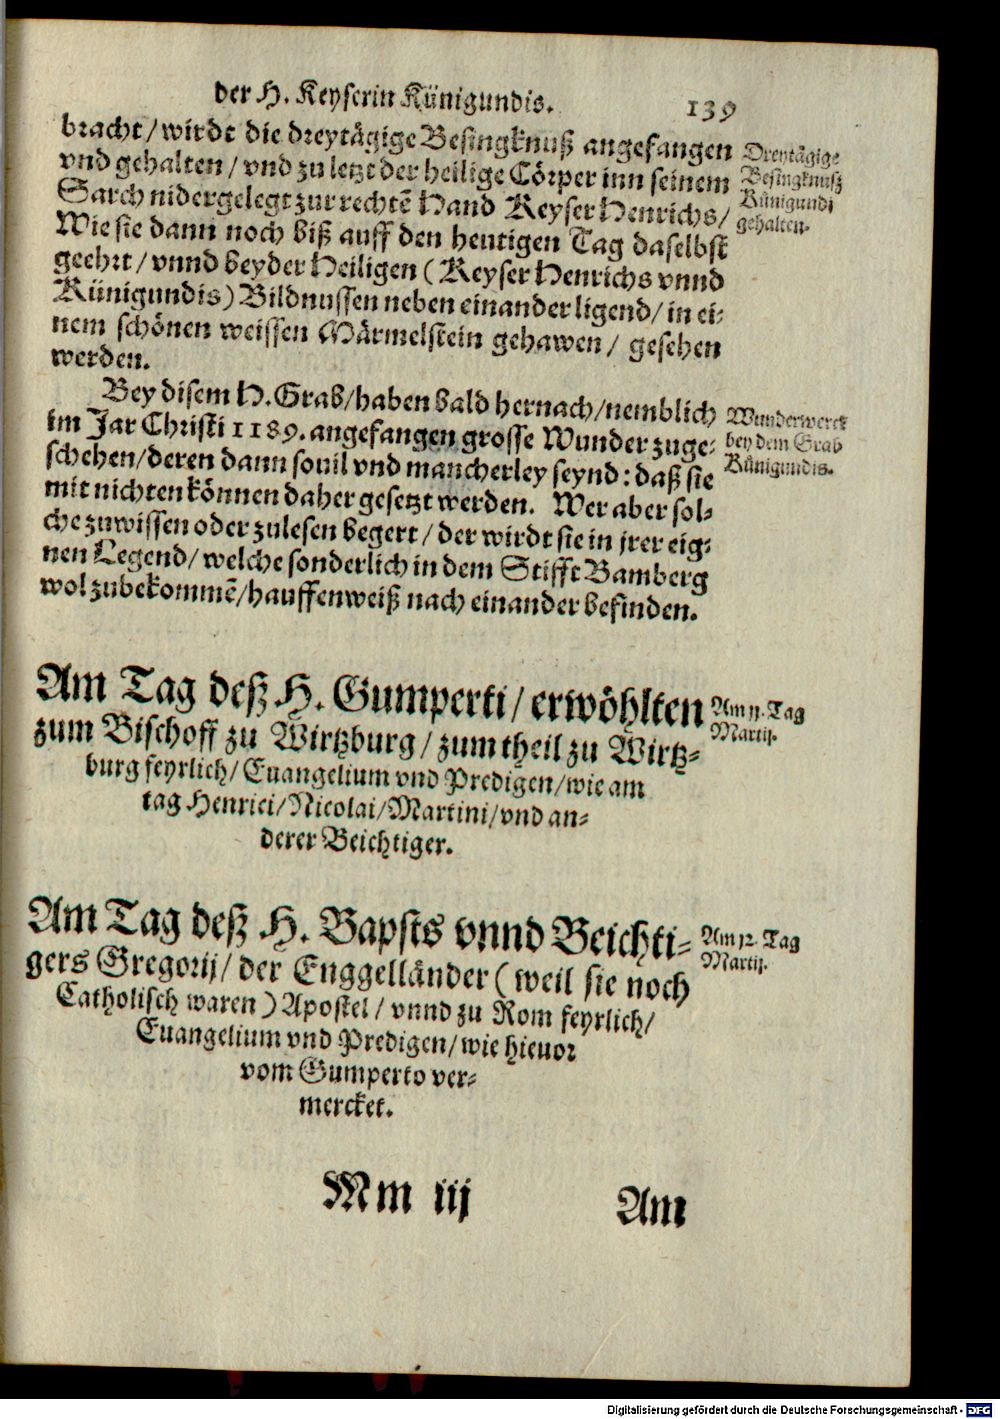 der H. Keyserin Künigundis. 139
bracht/ wirdt die dreytägige Besingknuß angefangen
vnd gehalten/ vnd zu letzt der heilige Cörper inn seinem
Sarch nidergelegt zur rechtẽ Hand Keyser Henrichs/
Wie sie dann noch biß auff den heutigen Tag daselbst
geehrt/ vnnd beyder Heiligen (Keyser Henrichs vnnd
Künigundis) Bildnussen neben einander ligend/ in ei-
nem schönen weissen Märmelstein gehawen/ gesehen
werden.
Dreytägige
Besingknuß
Künigundi
gehalten.
Bey disem H. Grab/ haben bald hernach/ nemblich
im Jar Christi 1189. angefangen grosse Wunder zuge-
schehen/ deren dann souil vnd mancherley seynd: daß sie
mit nichten können daher gesetzt werden. Wer aber sol-
che zuwissen oder zulesen begert/ der wirdt sie in jrer eig-
nen Legend/ welche sonderlich in dem Stifft Bamberg
wol zubekommẽ/ hauffenweiß nach einander befinden.
Wunderwerck
bey dem Grab
Künigundis.
Am Tag deß H. Gumperti/ erwöhlten
zum Bischoff zu Wirtzburg/ zum theil zu Wirtz-
burg feyrlich/ Euangelium vnd Predigen/ wie am
tag Henrici/ Nicolai/ Martini/ vnd an-
derer Beichtiger.
Am 11. Tag
Martij.
Am Tag deß H. Bapsts vnnd Beichti-
gers Gregorij/ der Enggelländer (weil sie noch
Catholisch waren) Apostel/ vnnd zu Rom feyrlich/
Euangelium vnd Predigen/ wie hieuor
vom Gumperto ver-
mercket.
Am 12. Tag
Martij.
Mm iij Am
Digitalisierung gefördert durch die Deutsche Forschungsgemeinschaft - DFG